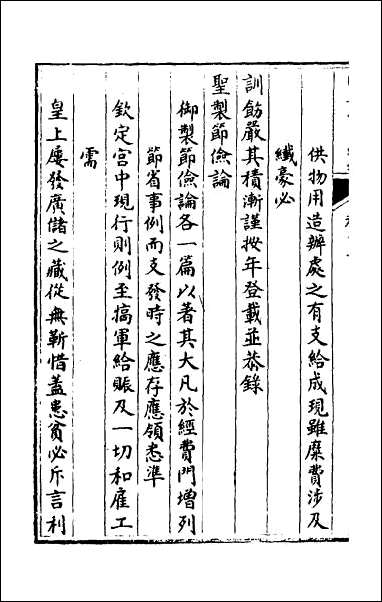 供物用造辦處之有支給成現雖糜費涉及
纖豪必
訓飭嚴其積漸謹按年登載並恭錄
聖製節儉論
御製節儉論各一篇以著其大凡於經費門增列
節省事例而支發時之應存應領悉準
欽定宮中現行則例至搞軍給賑及一切和雇工
需
皇上屢發廣儲之藏從無靳惜蓋患貧必斥言利